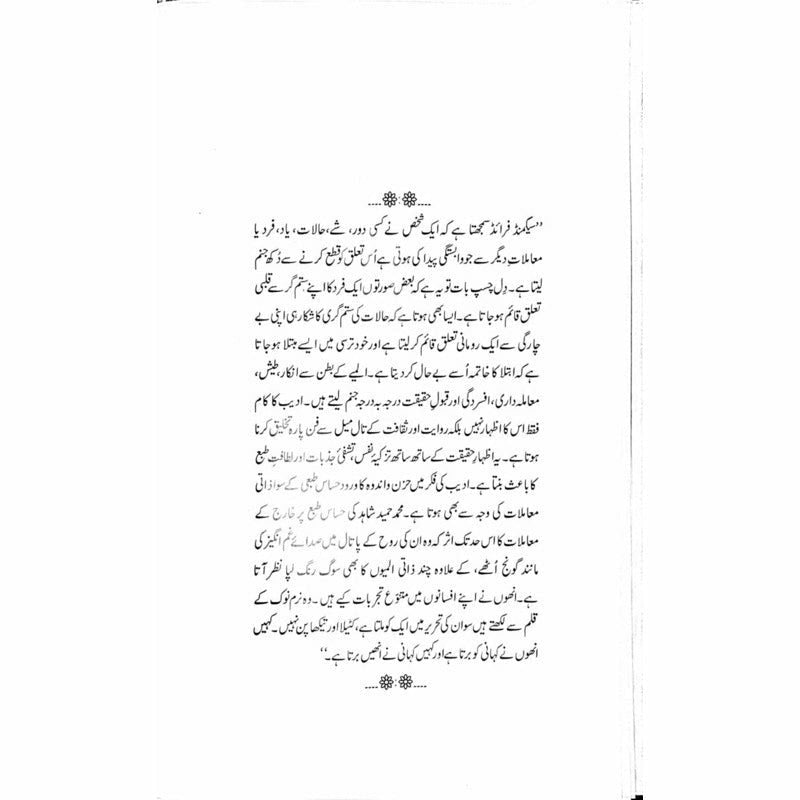 ’’سیگمنڈ فرائڈ سمجھتا ہے کہ ایک شخص نے کسی دور، شے، حالات، یاد، فرد یا
معاملاتِ دیگر سے جو وابستگی پیدا کی ہوتی ہے اُس تعلق کو قطع کرنے سے دُکھ جنم
لیتا ہے۔ دِل چسپ بات تو یہ ہے کہ بعض صورتوں ایک فرد کا اپنے ستم گر سے قلبی
تعلق قائم ہو جاتا ہے۔ ایسا بھی ہوتا ہے کہ حالات کی ستم گری کا شکار ہی اپنی بے
چارگی سے ایک رومانی تعلق قائم کر لیتا ہے اور خود ترسی میں ایسے مبتلا ہو جاتا
ہے کہ ابتلا کا خاتمہ اُسے بے حال کر دیتا ہے۔ المیے کے بطن سے انکار، طیش،
معاملہ داری، افسردگی اور قبولِ حقیقت درجہ بہ درجہ جنم لیتے ہیں۔ ادیب کا کام
فقط اس کا اظہار نہیں بلکہ روایت اور ثقافت کے تال میل سے فن پارہ تخلیق کرنا
ہوتا ہے۔ یہ اظہارِ حقیقت کے ساتھ ساتھ تزکیۂ نفس، تشفیٔ جذبات اور لطافتِ طبع
کا باعث بنتا ہے۔ ادیب کی فکر میں حزن و اندوہ کا ورود حساس طبعی کے سوا ذاتی
معاملات کی وجہ سے بھی ہوتا ہے۔ محمد حمید شاہد کی حساس طبع پر خارج کے
معاملات کا اس حد تک اثر کہ وہ ان کی روح کے پاتال میں صدائے غم انگیز کی
مانند گونج اُٹھے، کے علاوہ چند ذاتی المیوں کا بھی سوگ رنگ لپا نظر آتا
ہے۔ انھوں نے اپنے افسانوں میں متنوّع تجربات کیے ہیں۔ وہ نرم نوک کے
قلم سے لکھتے ہیں سو ان کی تحریر میں ایک کوملتا ہے، کٹیلا اور تیکھا پن نہیں۔ کہیں
انھوں نے کہانی کو برتا ہے اور کہیں کہانی نے انھیں برتا ہے۔‘‘